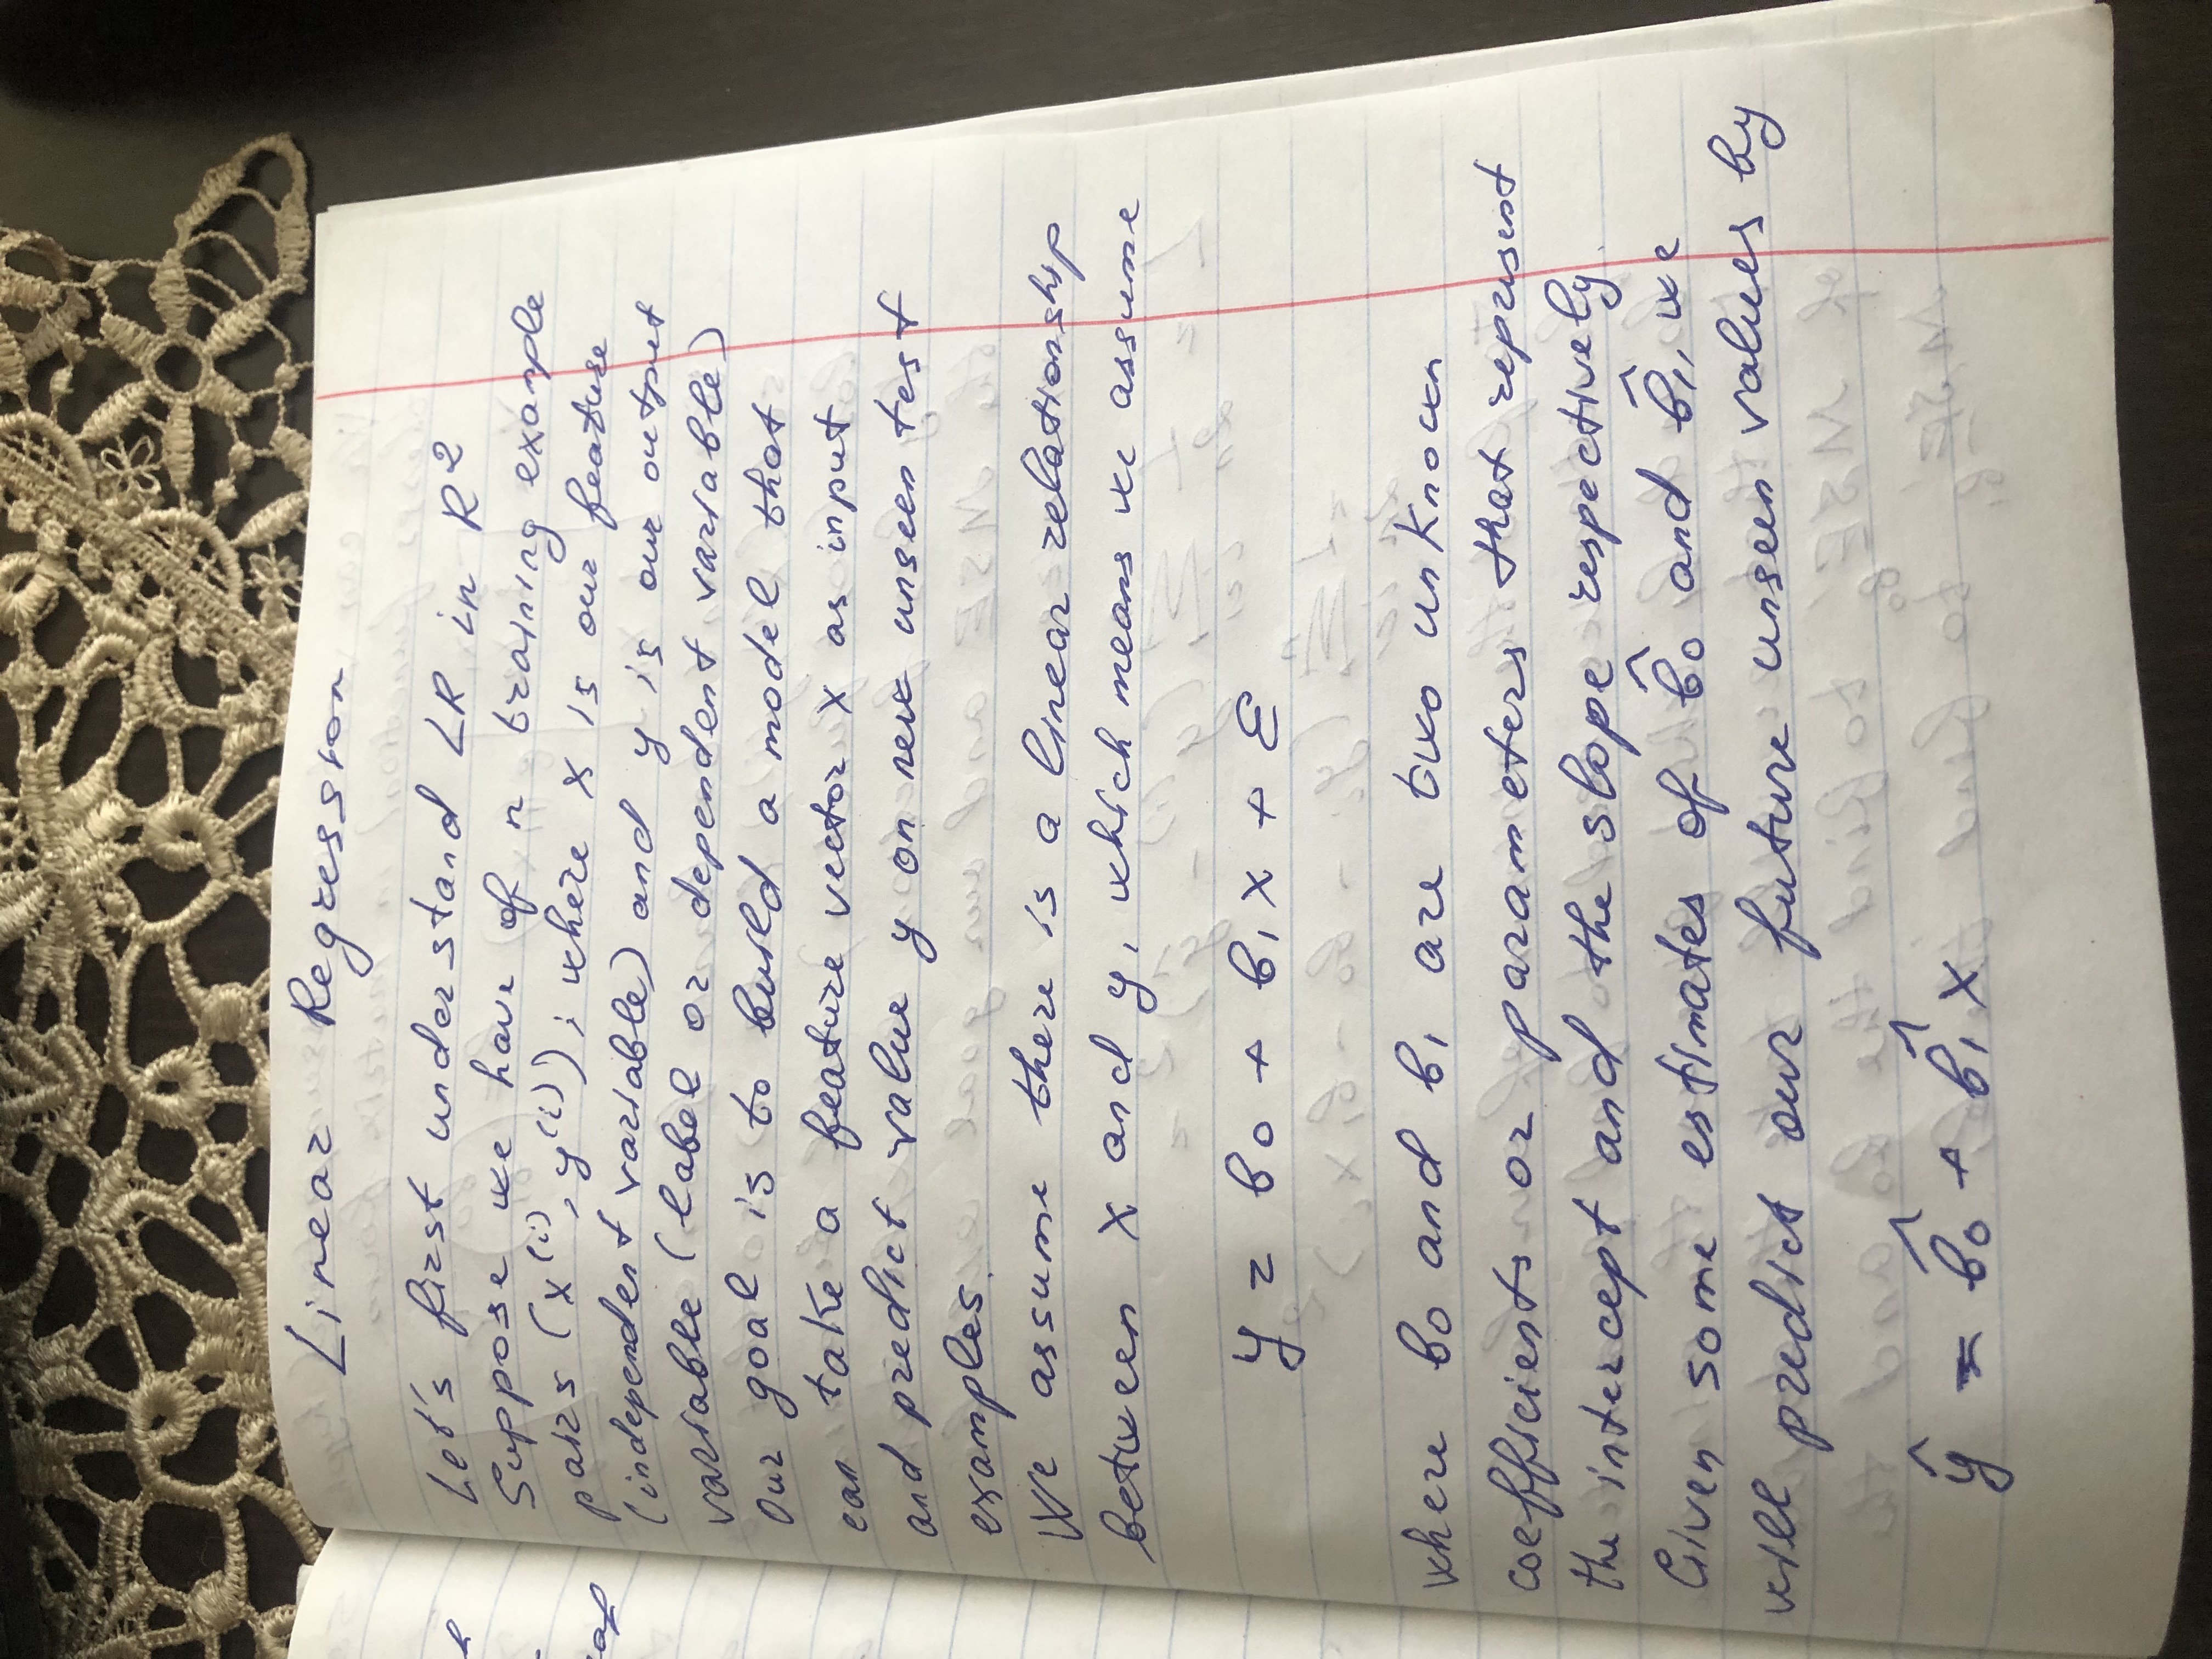 Linear Regression
Let's first understand LR in R²
Suppose we have of n training example
pairs (x⁽ⁱ⁾, y⁽ⁱ⁾); where x is our feature
(independent variable) and y is our output
variable (label or dependent variable)
Our goal is to build a model that
can take a feature vector x as input
and predict value y on new unseen test
examples.
We assume there is a linear relationship
between x and y, which means we assume
y = b₀ + b₁x + ε
where b₀ and b₁ are two unknown
coefficients or parameters that represent
the intercept and the slope respectively.
Given some estimates of b̂₀ and b̂₁, we
will predict our future unseen values by
ŷ = b̂₀ + b̂₁x